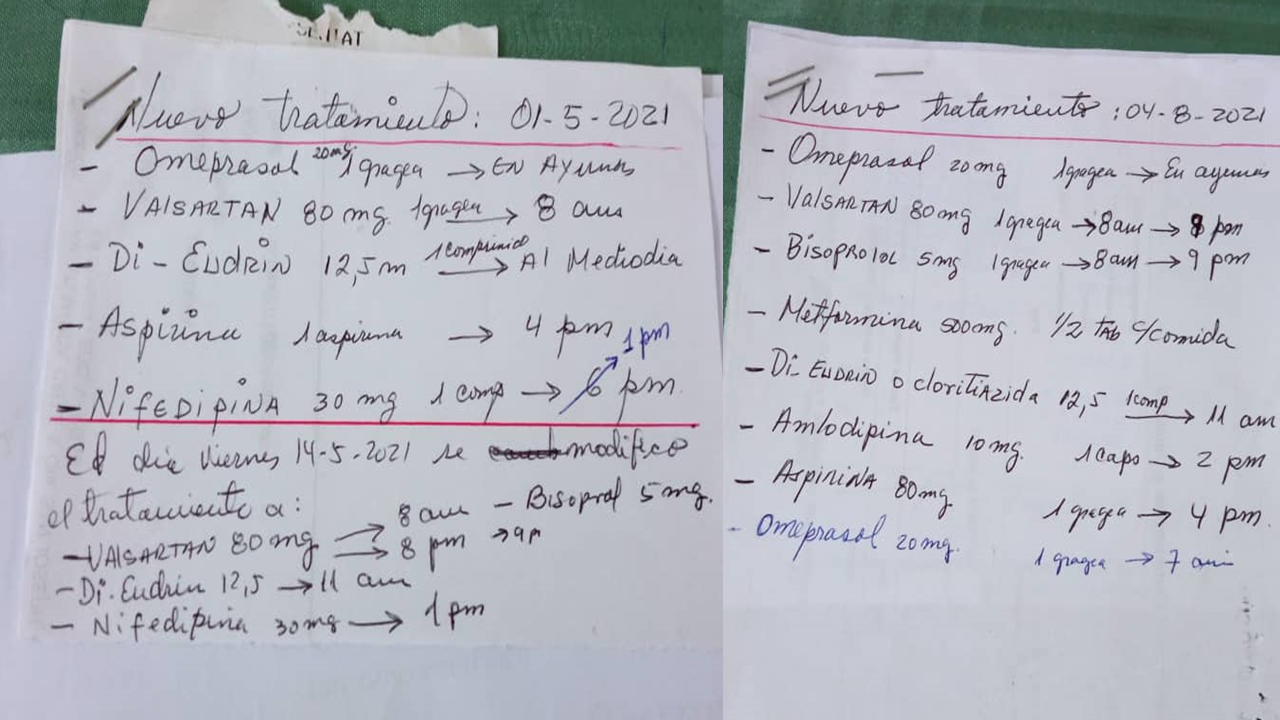 Nuevo tratamiento: 01-5-2021
- Omeprasol 20mg 1gragea → EN Ayunas
- VAlSARTAN 80 mg. 1gragea → 8 am
- Di-Eudrin 12,5m 1comprimido → Al Mediodia
- Aspirina 1aspirina → 4 pm
- NifEDipiNA 30 mg 1 comp → 6 pm. 1pm
El dia Viernes 14-5-2021 se modifico
el tratamiento a:
- VAlSARTAN 80mg → 8am → 8 pm
- Bisoprol 5mg. → 9p
- Di.Eudrin 12,5 → 11 am
- Nifedipina 30mg → 1pm
Nuevo tratamiento: 04-8-2021
- Omeprasol 20mg 1gragea → En ayunas
- ValSARTAN 80mg 1gragea → 8am → 8 pm
- Bisoprolol 5mg 1gragea → 8am → 9 pm
- Metformina 500mg. 1/2 TAb c/comida
- Di-EuDRIN o cloritiAzida 12,5 1comp → 11 am
- Amlodipina 10mg. 1 caps → 2 pm
- AspiRiNA 80mg 1 gragea → 4 pm.
- Omeprasol 20mg. 1 gragea → 7 am